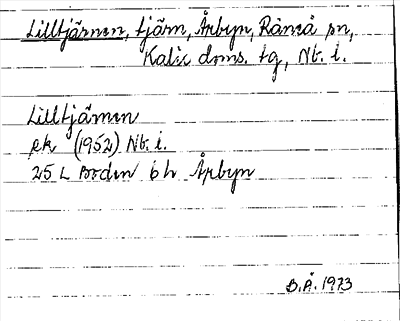 Lilltjärnen, tjärn, Årbyn, Råneå sn,
Kalix doms. tg, Nb. l.
Lilltjärnen
ek (1952) Nb. l.
25 L Boden 6 h Årbyn
B.Å. 1973